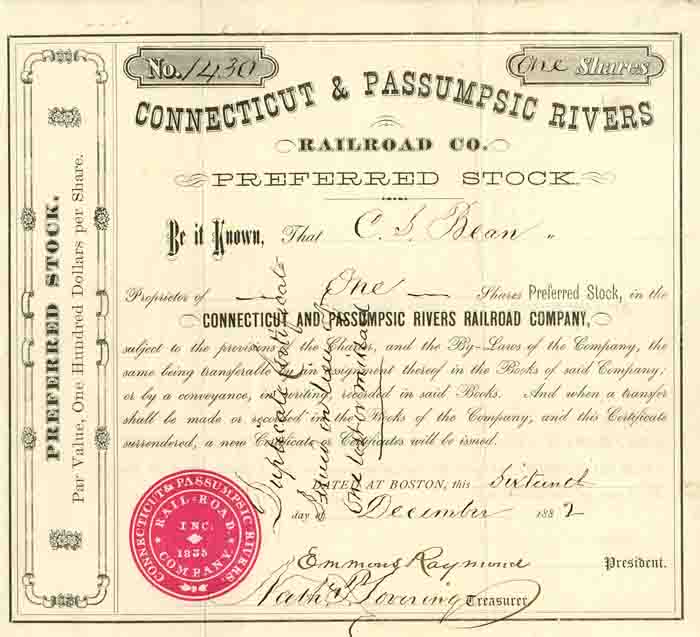 No. 1430
One Shares
CONNECTICUT & PASSUMPSIC RIVERS
RAILROAD CO.
PREFERRED STOCK.
Be it Known, That C. S. Bean "
Proprietor of — One — Shares Preferred Stock, in the
CONNECTICUT AND PASSUMPSIC RIVERS RAILROAD COMPANY,
subject to the provisions of the Charter, and the By-Laws of the Company, the
same being transferable by an assignment thereof in the Books of said Company;
or by a conveyance, in writing, recorded in said Books. And when a transfer
shall be made or recorded in the Books of the Company, and this Certificate
surrendered, a new Certificate or Certificates will be issued.
DATED AT BOSTON, this Sixteenth
day of December 1882
Emmons Raymond President.
Nath P. Lovering Treasurer
PREFERRED STOCK.
Par Value, One Hundred Dollars per Share.
Duplicate Certificate
Issued in lieu of
one lost in mail
CONNECTICUT & PASSUMPSIC RIVERS
RAIL-ROAD
INC.
1835
COMPANY.